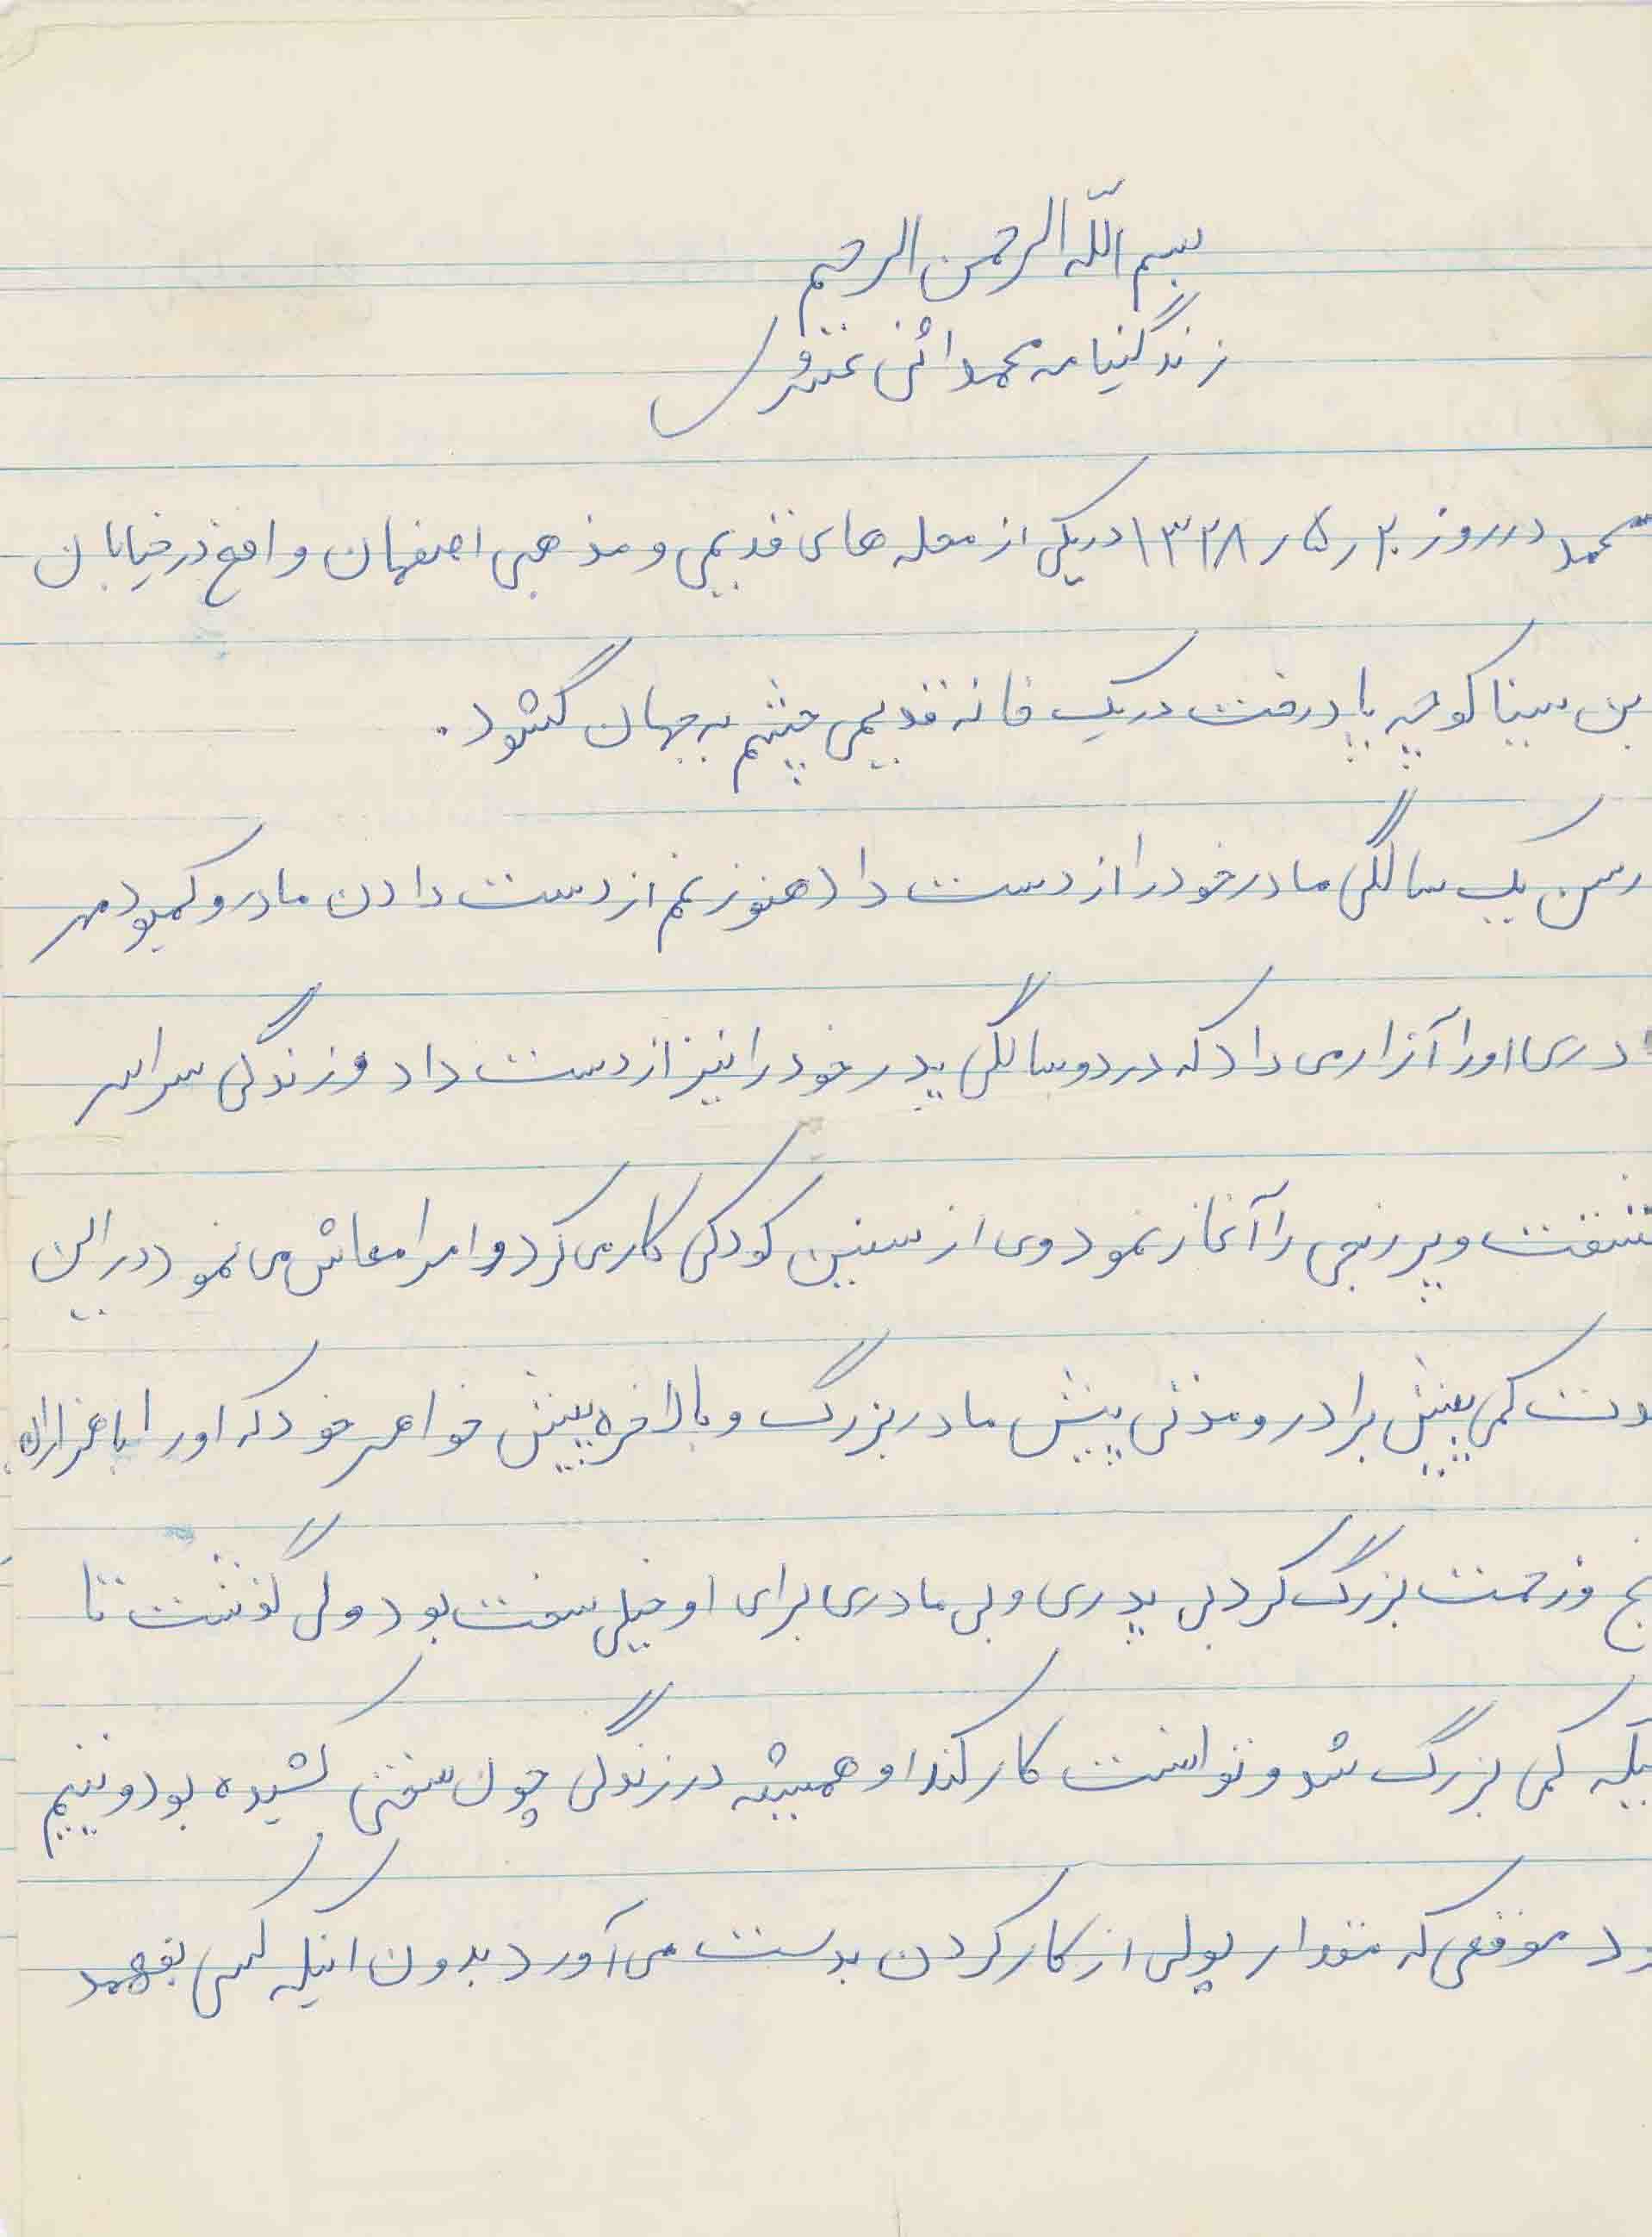 بسم الله الرحمن الرحیم
زندگینامه محمد
محمد در روز ۲۰ ر ۵ ر ۱۳۲۸ در یکی از محله های قدیمی و مذهبی اصفهان واقع در خیابان
بن سینا کوچه پا درخت در یک خانه قدیمی چشم به جهان گشود.
در سن یک سالگی مادر خود را از دست داد هنوز غم از دست دادن مادر و کمبود مهر
دری او را آزار می داد که در دو سالگی پدر خود را نیز از دست داد و زندگی سراسر
مشقت و پر رنجی را آغاز نمود وی از سنین کودکی کار می کرد و امرار معاش می نمود در این
مدت کمی پیش برادر و مدتی پیش مادر بزرگ و بالاخره پیش خواهر خود که او را با هزاران
رنج و زحمت بزرگ کرد بی پدری و بی مادری برای او خیلی سخت بود ولی گذشت تا
اینکه کمی بزرگ شد و توانست کار کند او همیشه در زندگی چون سختی کشیده بود و یتیم
بود موقعی که مقدار پولی از کار کردن بدست می آورد بدون اینکه کسی بفهمد